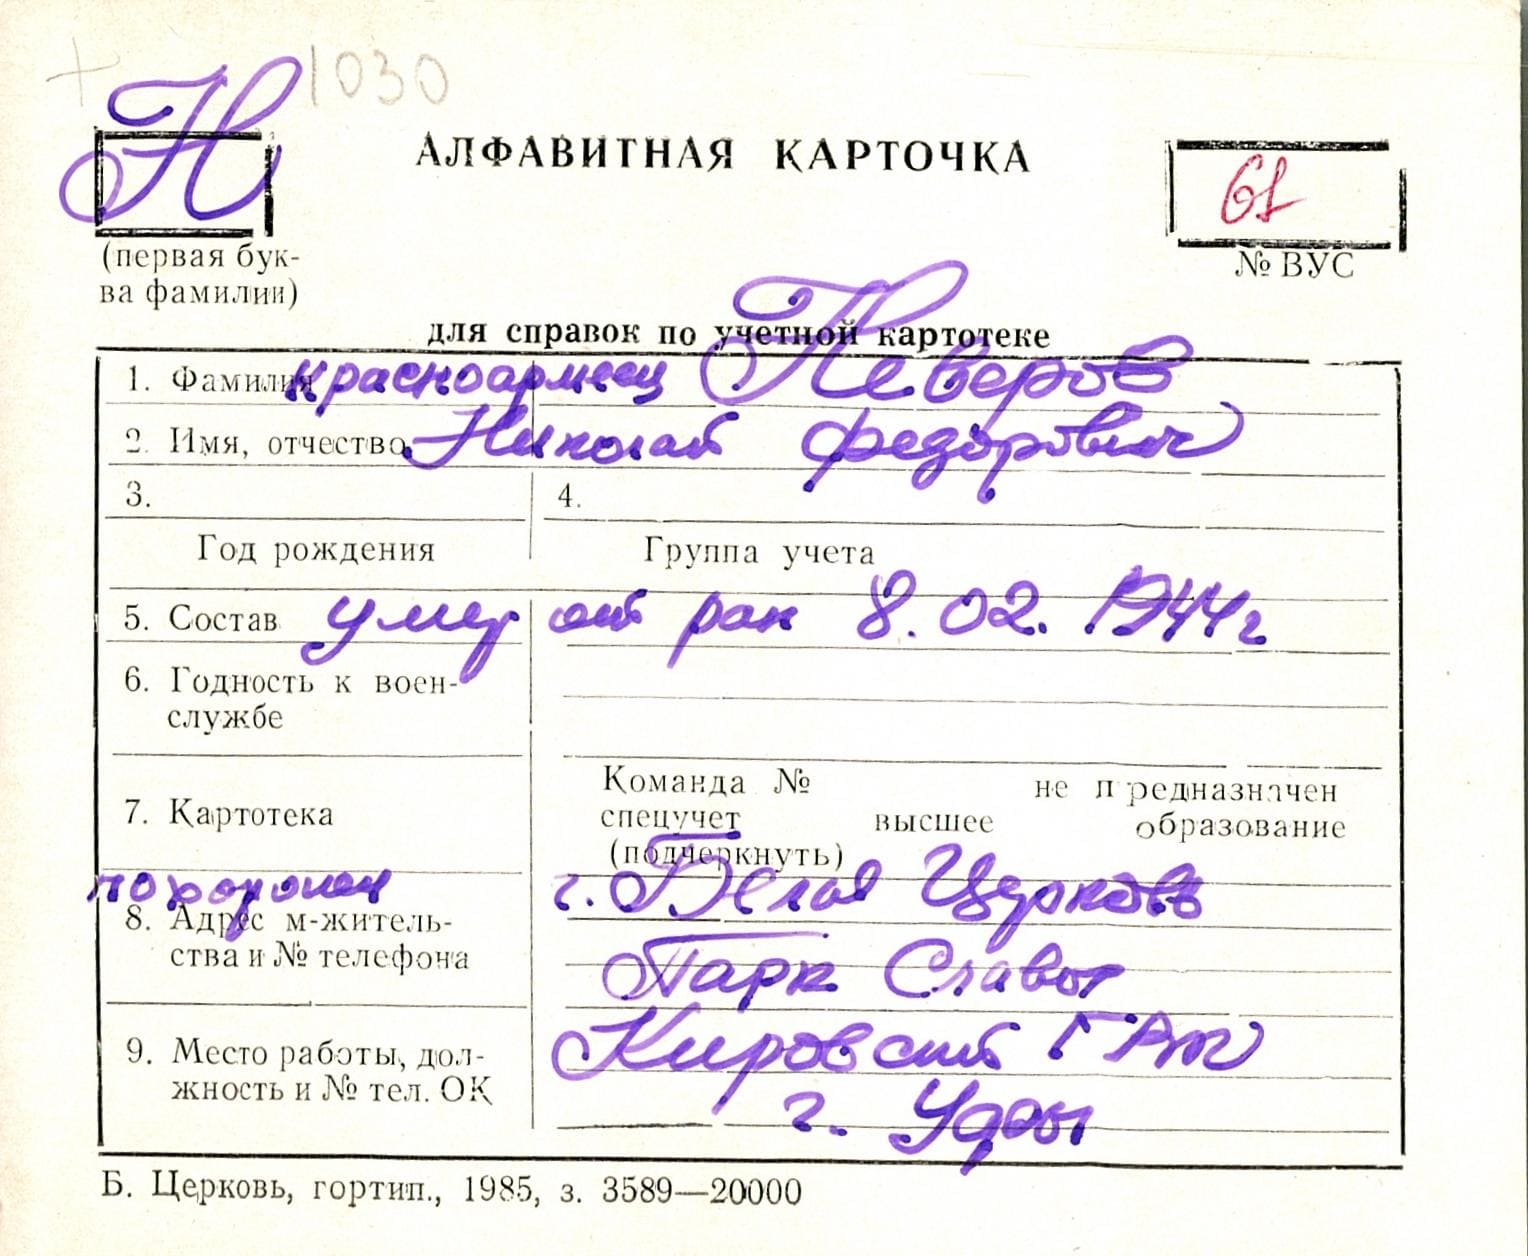 + 1030
Н
АЛФАВИТНАЯ КАРТОЧКА
61
(первая бук-
ва фамилии)
№ ВУС
для справок по учетной картотеке
1. Фамилия красноармеец Неверов
2. Имя, отчество Николай Федорович
3.
4.
Год рождения
Группа учета
5. Состав умер от ран 8.02.1944г
6. Годность к воен-
службе
7. Картотека
Команда № не предназначен
спецучет высшее образование
(подчеркнуть)
похоронен г. Белая Церковь
8. Адрес м-житель-
ства и № телефона
Парк Славы
9. Место работы, дол-
жность и № тел. ОК
Кировский
г.
Б. Церковь, гортип., 1985, з. 3589—20000